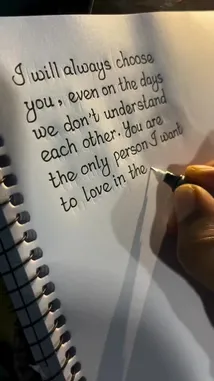 I will always choose
you, even on the days
we don't understand
each other. You are
the only person I want
to love in the